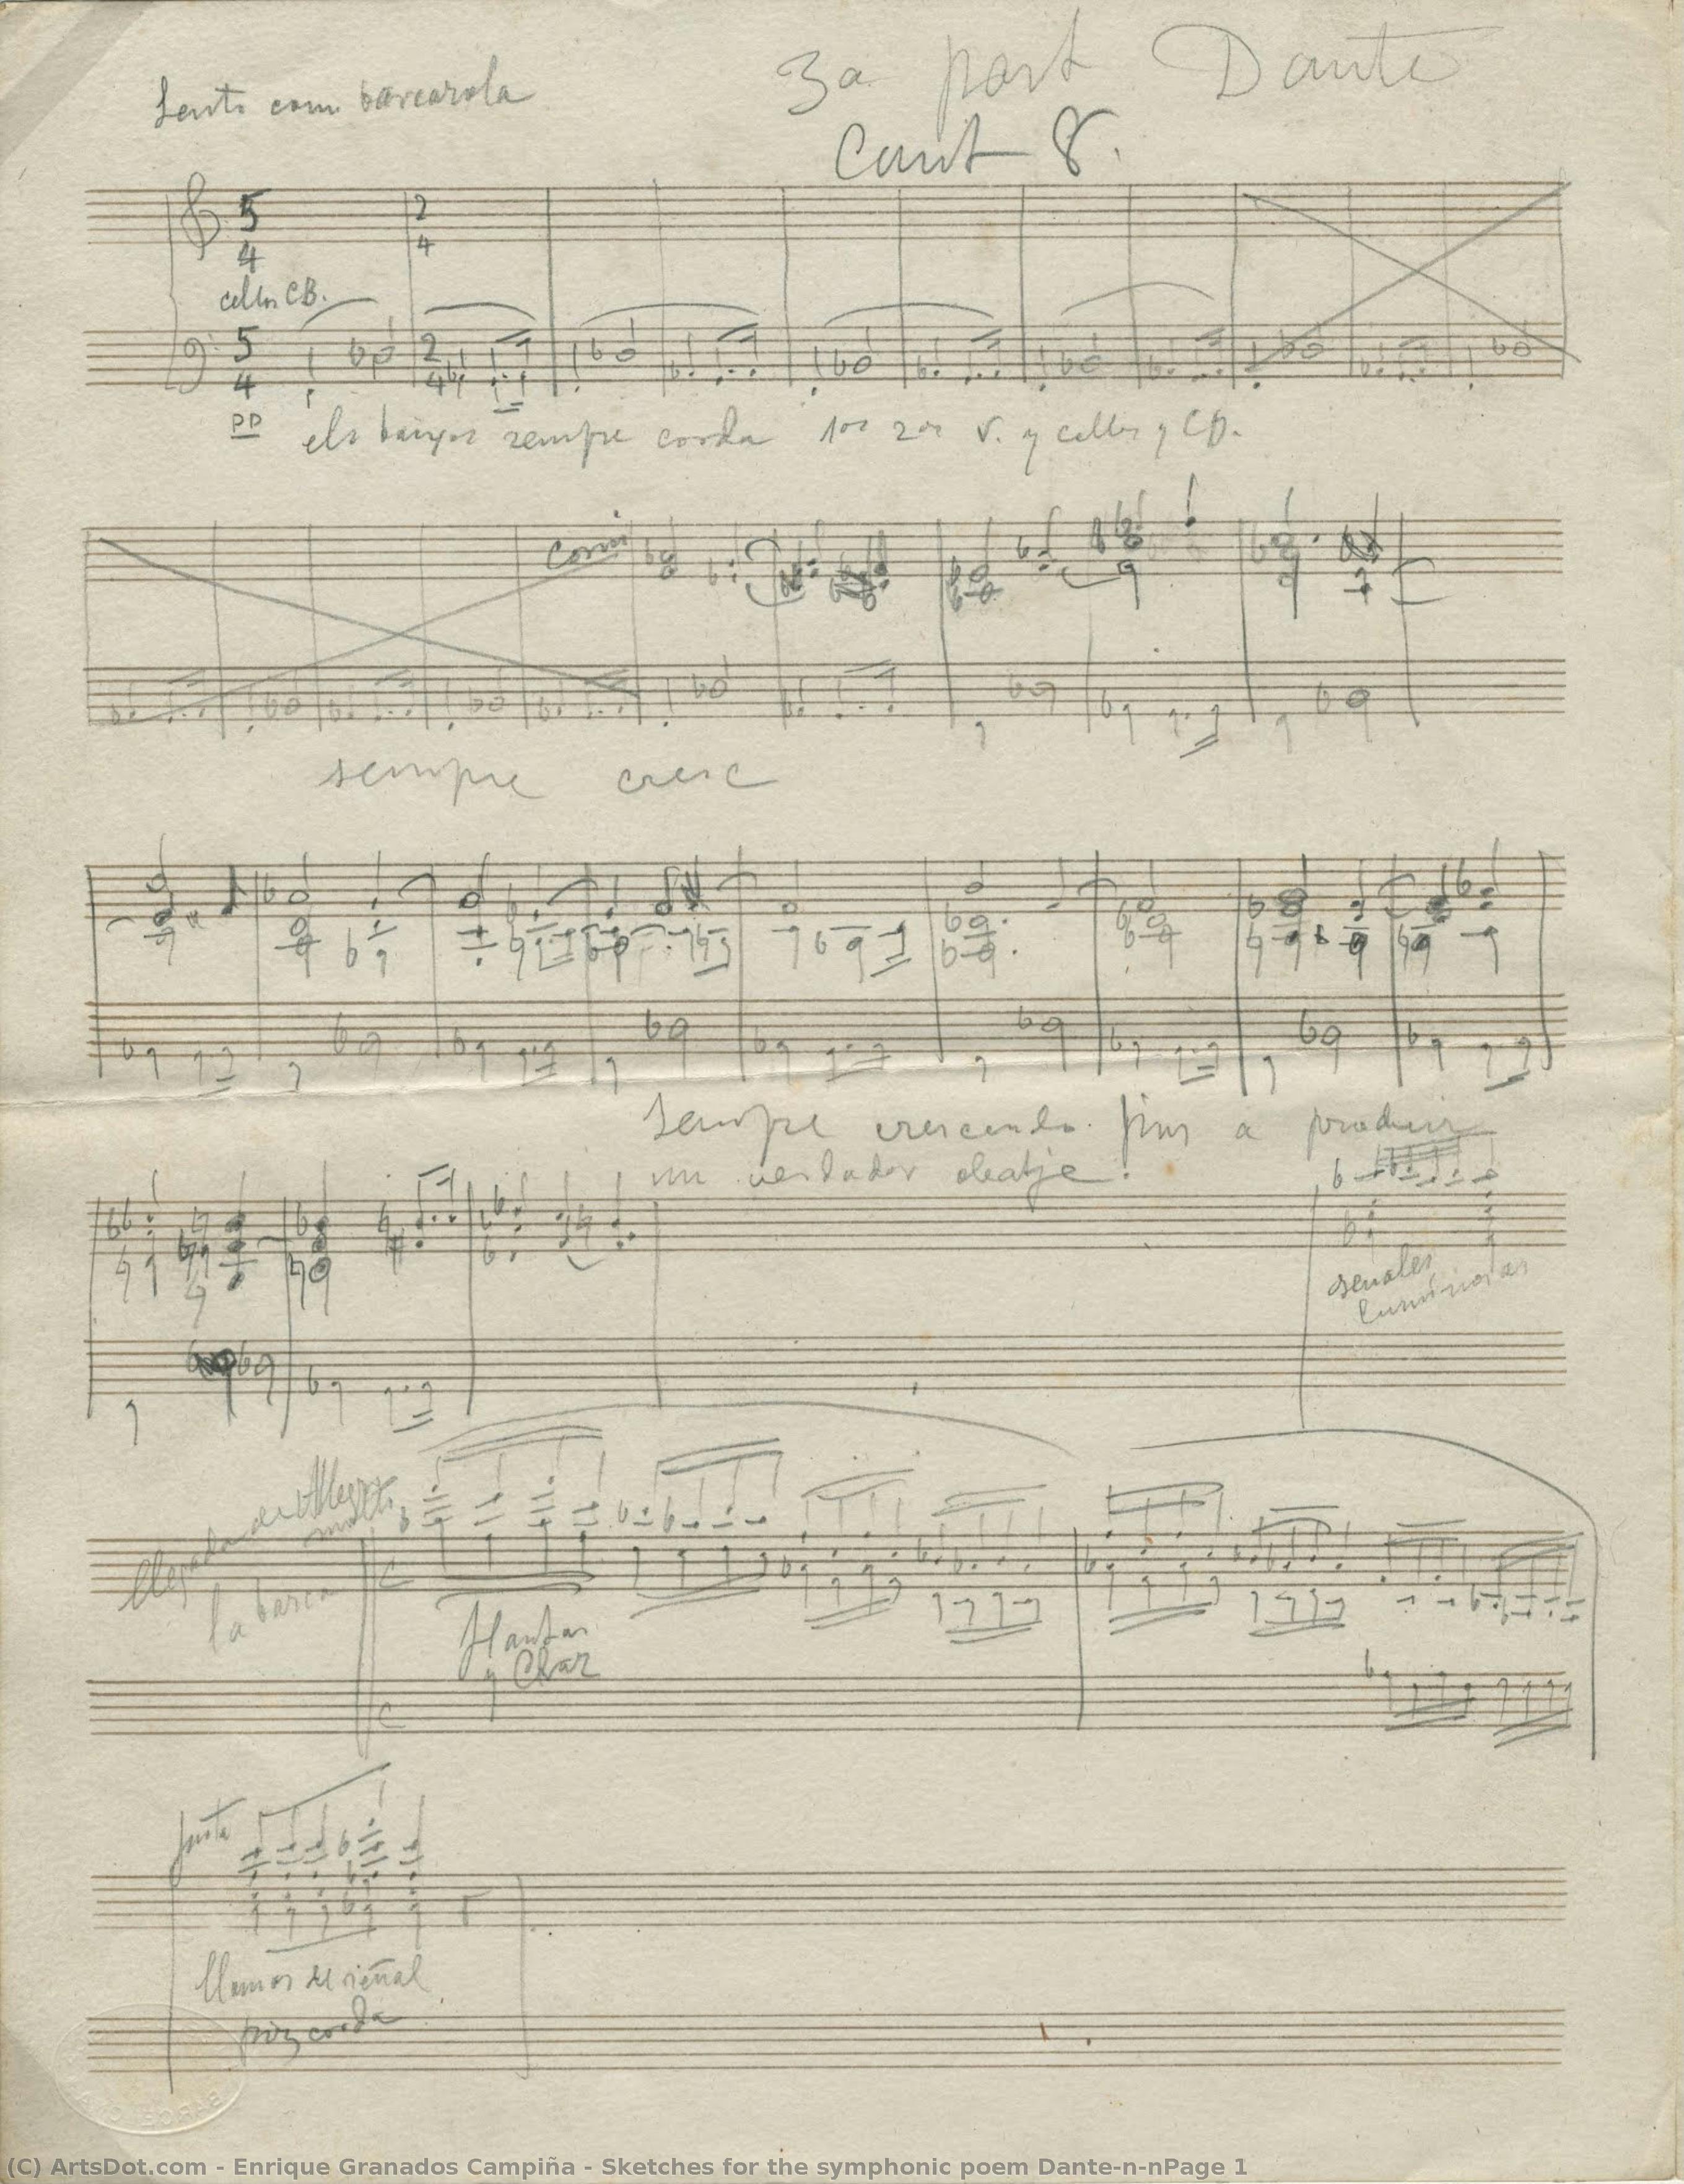 3a part Dante
Lento com barcarola
Cant 8.
5 4 2 4
cellos CB.
5 4 2 4
pp
els baixos sempre corda 1os 2os V. y cellos y CB.
Corni
sempre cresc
Sempre crescendo fins a produir
un verdader oleatje!
senales
luminosas
Allegro
molto
llegada de
la barca
C
flautas
y Clar
C
justa
llamas del señal
pizz corda
BARCELONA
(C) ArtsDot.com - Enrique Granados Campiña - Sketches for the symphonic poem Dante-n-nPage 1